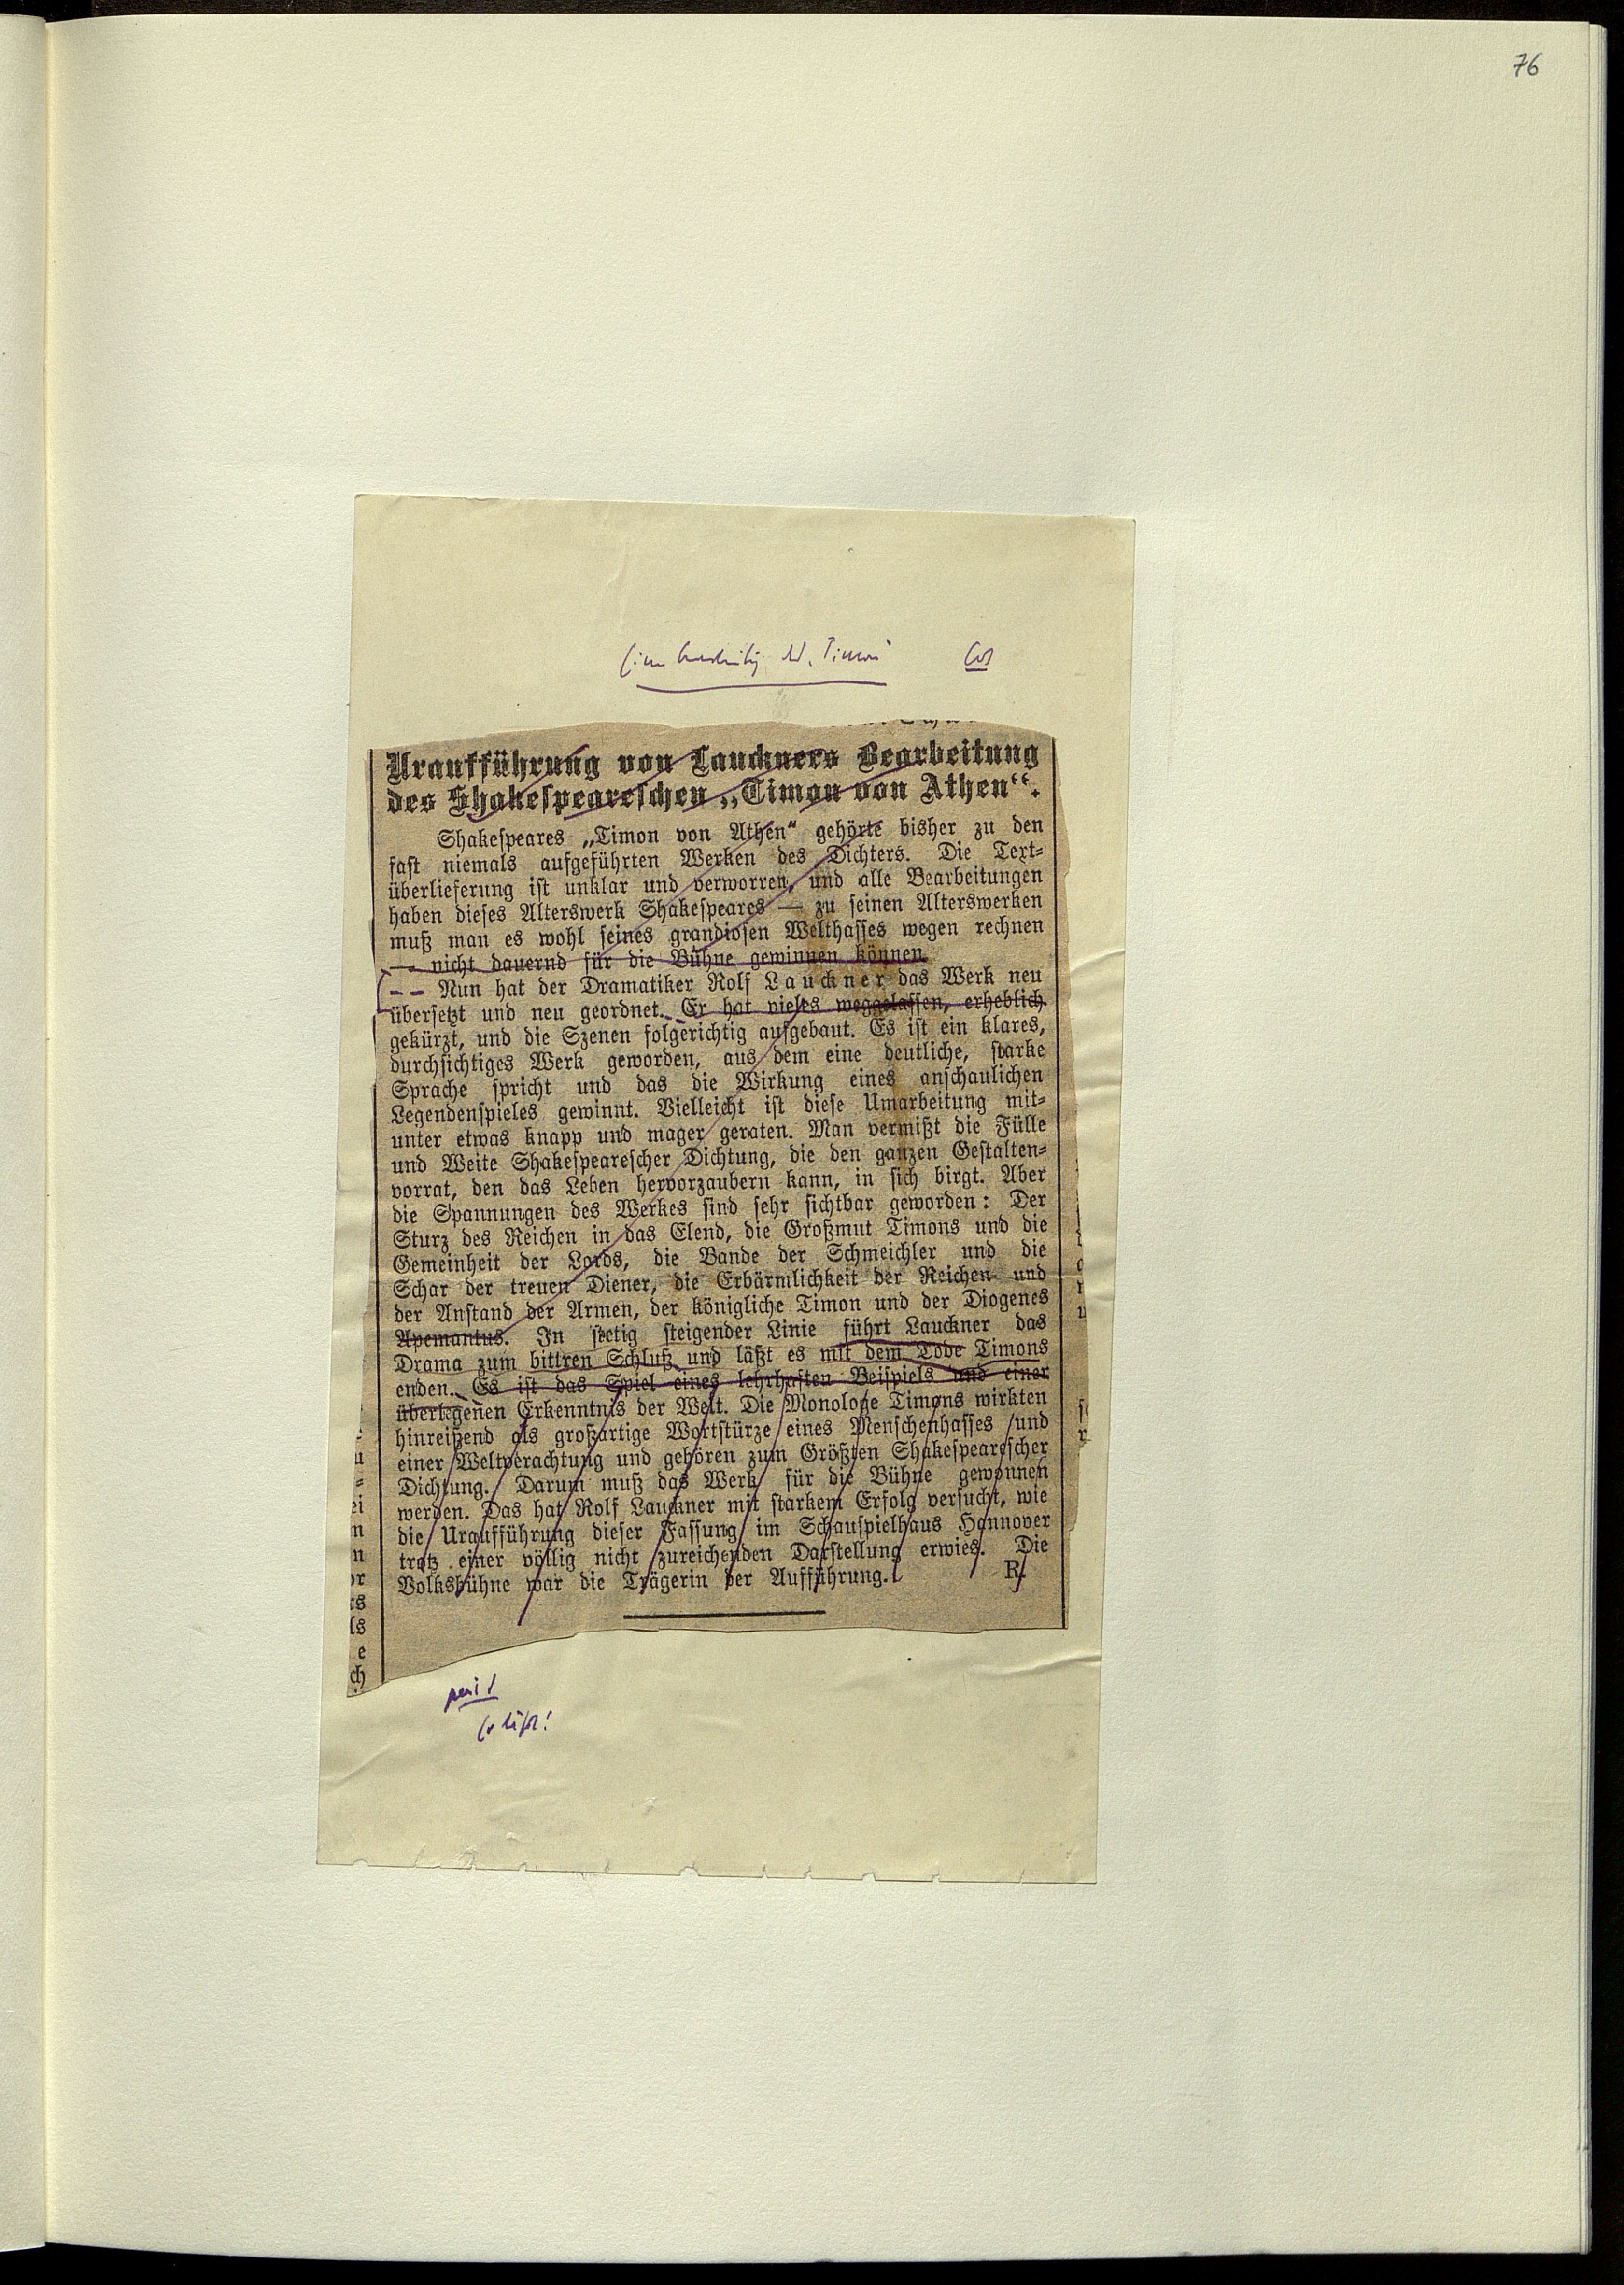 76
Uraufführung von Lauckners Bearbeitung
des Shakespeareschen „Timon von Athen“.
Shakespeares „Timon von Athen“ gehörte bisher zu den
fast niemals aufgeführten Werken des Dichters. Die Text-
überlieferung ist unklar und verworren, und alle Bearbeitungen
haben dieses Alterswerk Shakespeares — zu seinen Alterswerken
muß man es wohl seines grandiosen Welthasses wegen rechnen
— nicht dauernd für die Bühne gewinnen können.
Nun hat der Dramatiker Rolf Lauckner das Werk neu
übersetzt und neu geordnet. Er hat vieles weggelassen, erheblich
gekürzt, und die Szenen folgerichtig aufgebaut. Es ist ein klares,
durchsichtiges Werk geworden, aus dem eine deutliche, starke
Sprache spricht und das die Wirkung eines anschaulichen
Legendenspieles gewinnt. Vielleicht ist diese Umarbeitung mit-
unter etwas knapp und mager geraten. Man vermißt die Fülle
und Weite Shakespearescher Dichtung, die den ganzen Gestalten-
vorrat, den das Leben hervorzaubern kann, in sich birgt. Aber
die Spannungen des Werkes sind sehr sichtbar geworden: Der
Sturz des Reichen in das Elend, die Großmut Timons und die
Gemeinheit der Lords, die Bande der Schmeichler und die
Schar der treuen Diener, die Erbärmlichkeit der Reichen und
der Anstand der Armen, der königliche Timon und der Diogenes
Apemantus. In stetig steigender Linie führt Lauckner das
Drama zum bittren Schluß und läßt es mit dem Tode Timons
enden. Es ist das Spiel eines lehrhaften Beispiels und einer
überlegenen Erkenntnis der Welt. Die Monologe Timons wirkten
hinreißend als großartige Wortstürze eines Menschenhasses und
einer Weltverachtung und gehören zum Größten Shakespearescher
Dichtung. Darum muß das Werk für die Bühne gewonnen
werden. Das hat Rolf Lauckner mit starkem Erfolg versucht, wie
die Uraufführung dieser Fassung im Schauspielhaus Hannover
trotz einer völlig nicht zureichenden Darstellung erwies. Die
Volksbühne war die Trägerin der Aufführung. R.